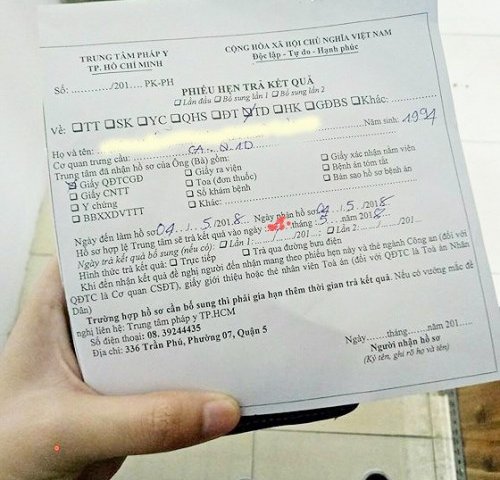 TRUNG TÂM PHÁP Y
TP. HỒ CHÍ MINH
CỘNG HÒA XÃ HỘI CHỦ NGHĨA VIỆT NAM
Độc lập - Tự do - Hạnh phúc
Số: ............/201.... PK-PH
PHIẾU HẸN TRẢ KẾT QUẢ
☐ Lần đầu ☐ Bổ sung lần 1 ☐ Bổ sung lần 2
Về: ☐TT ☐SK ☐YC ☐QHS ☐ĐT ☑TD ☐HK ☐GĐBS ☐Khác:
Họ và tên: Năm sinh: 1994
Cơ quan trưng cầu: CA. Q. 10
Trung tâm đã nhận hồ sơ của Ông (Bà) gồm:
☑ Giấy QĐTCGĐ ☐ Giấy ra viện ☐ Giấy xác nhận nằm viện
☐ Giấy CNTT ☐ Toa (đơn thuốc) ☐ Bệnh án tóm tắt
☐ Y chứng ☐ Số khám bệnh ☐ Bản sao hồ sơ bệnh án
☐ BBXXDVTTT ☐ Khác:
Ngày đến làm hồ sơ 04 / 5 /2018. Ngày nhận hồ sơ 04 / 5 /2018
Hồ sơ hợp lệ Trung tâm sẽ trả kết quả vào ngày: tháng: 5 năm 2018.
Ngày trả kết quả bổ sung (nếu có): ☐ Lần 1: ..../..../201...; ☐ Lần 2: ..../..../201....
Hình thức trả kết quả: ☐ Trực tiếp ☐ Trả qua đường bưu điện
Khi đến nhận kết quả đề nghị người đến nhận mang theo phiếu hẹn và thẻ ngành Công an (đối với
QĐTC là Cơ quan CSĐT), giấy giới thiệu hoặc thẻ nhân viên Toà án (đối với QĐTC là Toà án Nhân
Dân)
Trường hợp hồ sơ cần bổ sung thì phải gia hạn thêm thời gian trả kết quả. Nếu có vướng mắc đề
nghị liên hệ: Trung tâm pháp y TP.HCM
Số điện thoại: 08. 39244435
Địa chỉ: 336 Trần Phú, Phường 07, Quận 5
Ngày......tháng......năm 201....
Người nhận hồ sơ
(Ký tên, ghi rõ họ và tên)